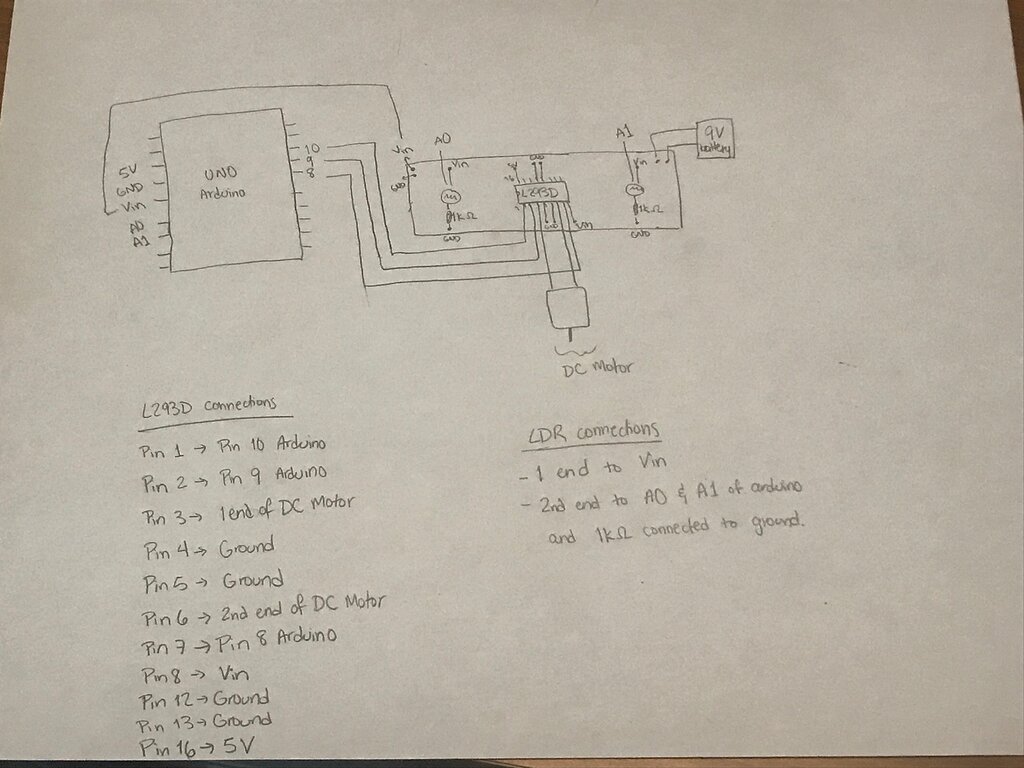 10
9
8
UNO
Arduino
5V
GND
Vin
A0
A1
A0
Vin
1kΩ
GND
GND
L293D
GND
Vin
A1
Vin
1kΩ
GND
9V
battery
DC Motor
L293D connections
Pin 1 → Pin 10 Arduino
Pin 2 → Pin 9 Arduino
Pin 3 → 1 end of DC Motor
Pin 4 → Ground
Pin 5 → Ground
Pin 6 → 2nd end of DC Motor
Pin 7 → Pin 8 Arduino
Pin 8 → Vin
Pin 12 → Ground
Pin 13 → Ground
Pin 16 → 5V
LDR connections
- 1 end to Vin
- 2nd end to A0 & A1 of arduino
and 1kΩ connected to ground.